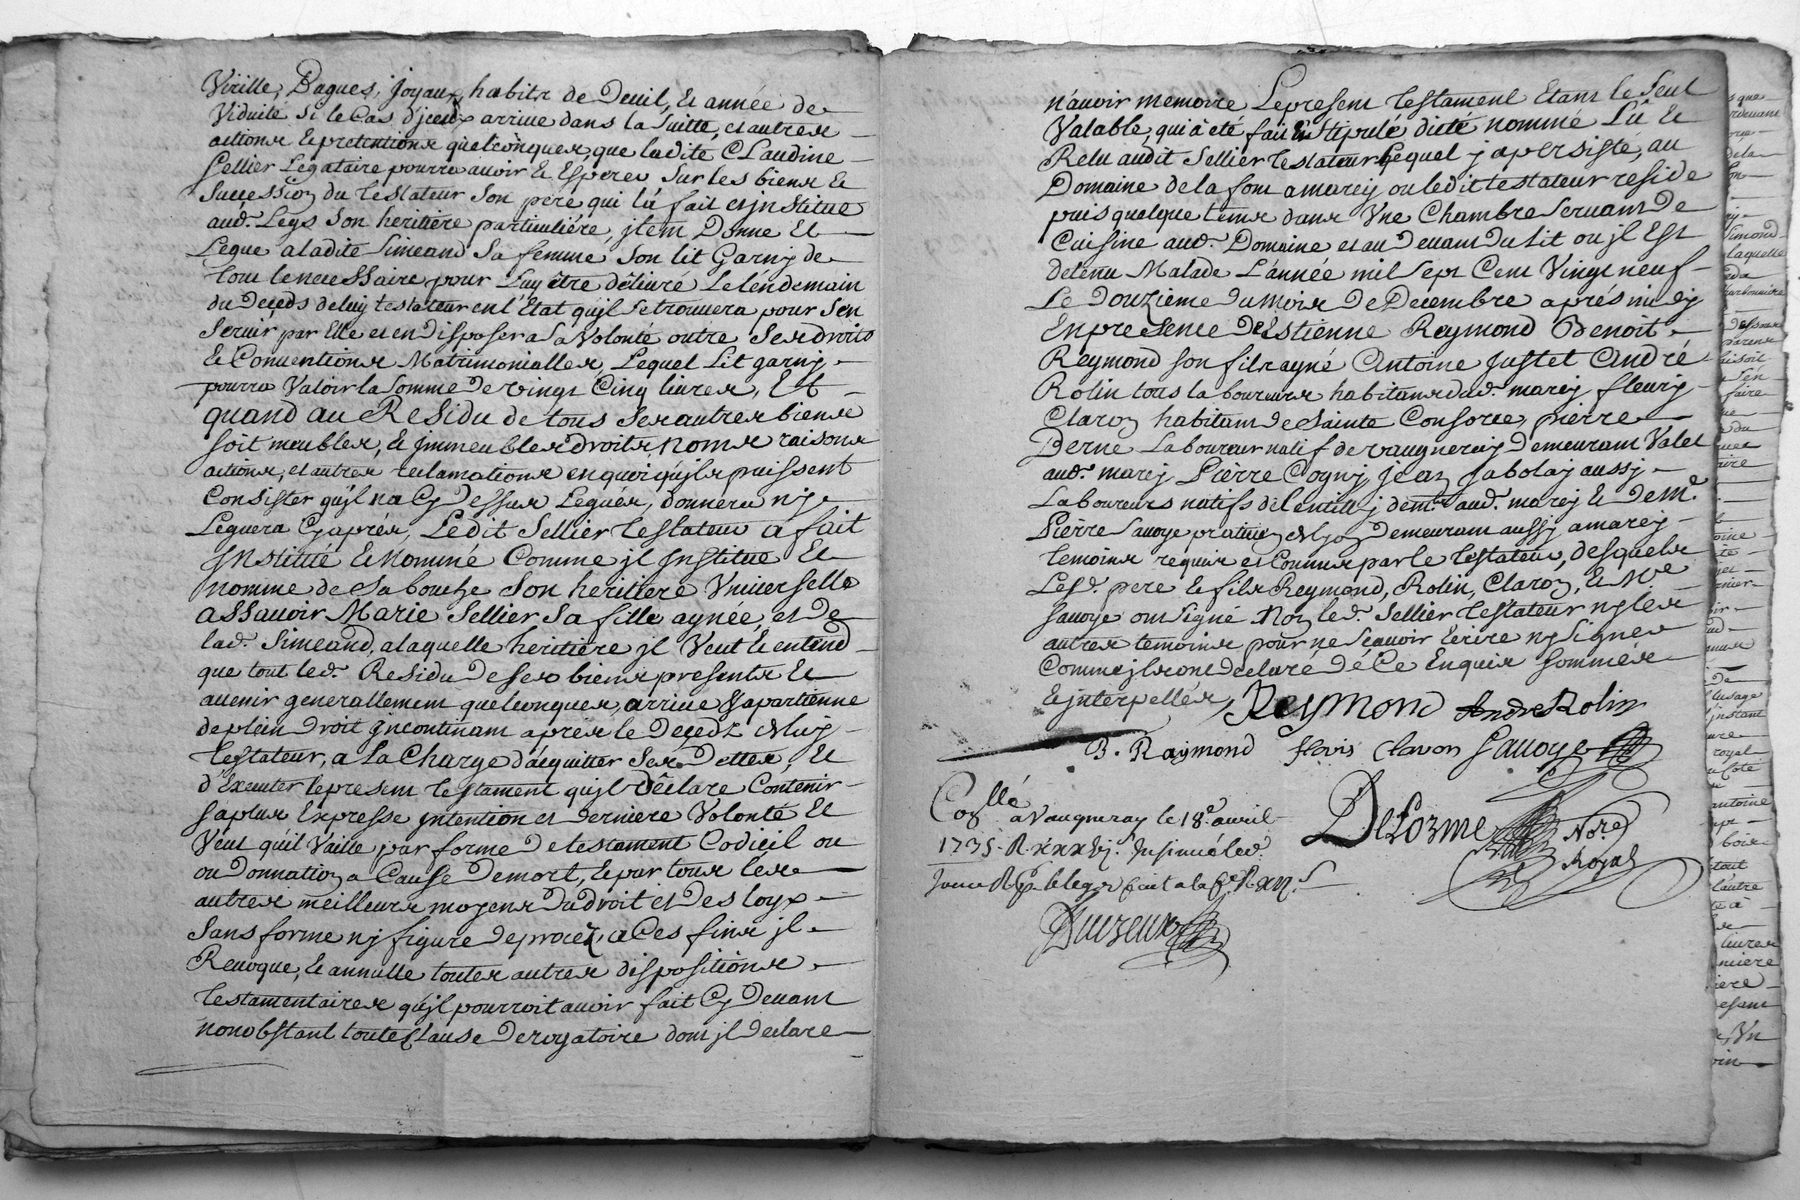 Virille, Bagues, joyaux, habitz de Deuil, et année de
Viduité si le Cas d'jceux arriue dans la suitte, et autres
actions et pretentions quelconques, que ladite Claudine
Sellier Legataire pourra auoir et Esperer sur les biens et
Succession du testateur son pere qui la fait et jnstitue
aud. Legs son heritiere particuliére, jtem Donne et
Legue a ladite Simeand sa femme son lit Garnj de
tout le necessaire pour Luy être délivré Le léndemain
du Deçeds de luy testateur en l'Etat qu'jl se trouuera pour s'en
seruir par Elle et en Disposer a sa Volonté outre ses droits
et Conuentions Matrimonialles, Lequel Lit garnj
pourra Valoir la somme de vingt Cinq liures, Et
quand au Residu de tous ses autres biens
soit meubles, et jmmeubles droits, noms raisons
actions, et autres reclamations en quoi qu'jls puissent
Consister qu'jl na Cy Dessus Legués, donnera nj
Leguera Cyaprés, Ledit Sellier testateur a fait
jnstitué et Nommé Comme jl jnstitue et
nomme de sa bouche son heritiere Vniverselle
assauoir Marie Sellier sa fille aynée, et de
lad. Simeand, a laquelle heritiere jl Veut et entend
que tout led. Residu de ses biens presents et
auenir generallement quelconques, arriue et apartienne
de plein droit jncontinant aprés le Deçedz de luy
testateur, a La Charge d'acquitter ses Dettes, et
d'Executer le present testament qu'jl déclare Contenir
sa plus Expresse jntention et derniere Volonté et
Veut qu'il Vaille par forme de testament Codicil ou
ou Donnation a Cause de mort, et par tous les
autres meilleurs moyens du droit et des loyx
sans forme nj figure de procez, a Ces fins jl
Reuoque, et annulle toutes autres dispositions
testamentaires qu'jl pourroit auoir fait Cy Deuant
nonobstant toute Clause Derogatoire dont jl declare
n'auoir memoire Le present testament Etant le seul
Valable, qui à été fait stipulé dicté nommé Lû et
Relu audit Sellier testateur Lequel j a persisté, au
Domaine de la font a marcy ou ledit testateur reside
puis quelque tems dans Vne Chambre seruant de
Cuisine aud. Domaine et au deuant du Lit ou jl Est
detenu Malade L'année mil sept Cent Vingt neuf
Le Douzieme du mois de Decembre aprés midy
En presence d'Estienne Reymond Benoit
Reymond son fils ayné Antoine Justet André
Rolin tous laboureurs habitans dud. marcy fleury
Claron habitant de sainte Consorce, pierre
Berne Laboureur natif de vaugneray demeurant Valet
aud. marcy Pierre Cogny, jean Jabolay aussy
Laboureurs natifs de Lentilly demt. aud. marcy et Me.
Pierre sauoye praticien de lyon demeurant aussy a marcy
temoins requis et Connus par le testateur, desquels
Lesd. pere et fils Reymond, Rolin, Claron, et Me
sauoye ont signé Non led. Sellier testateur ny les
autres temoins pour ne sçauoir Ecrire ny signer
Comme jls ont declaré de Ce Enquis sommés
et jnterpellés, Reymond Andre Rolin
B. Raymond floris claron Sauoye
Conllé à Vaugneray le 18e. auril Delorme Nore.
1735. R xxxvj. s. jnsinué led. Royal
jour R
Duizeux